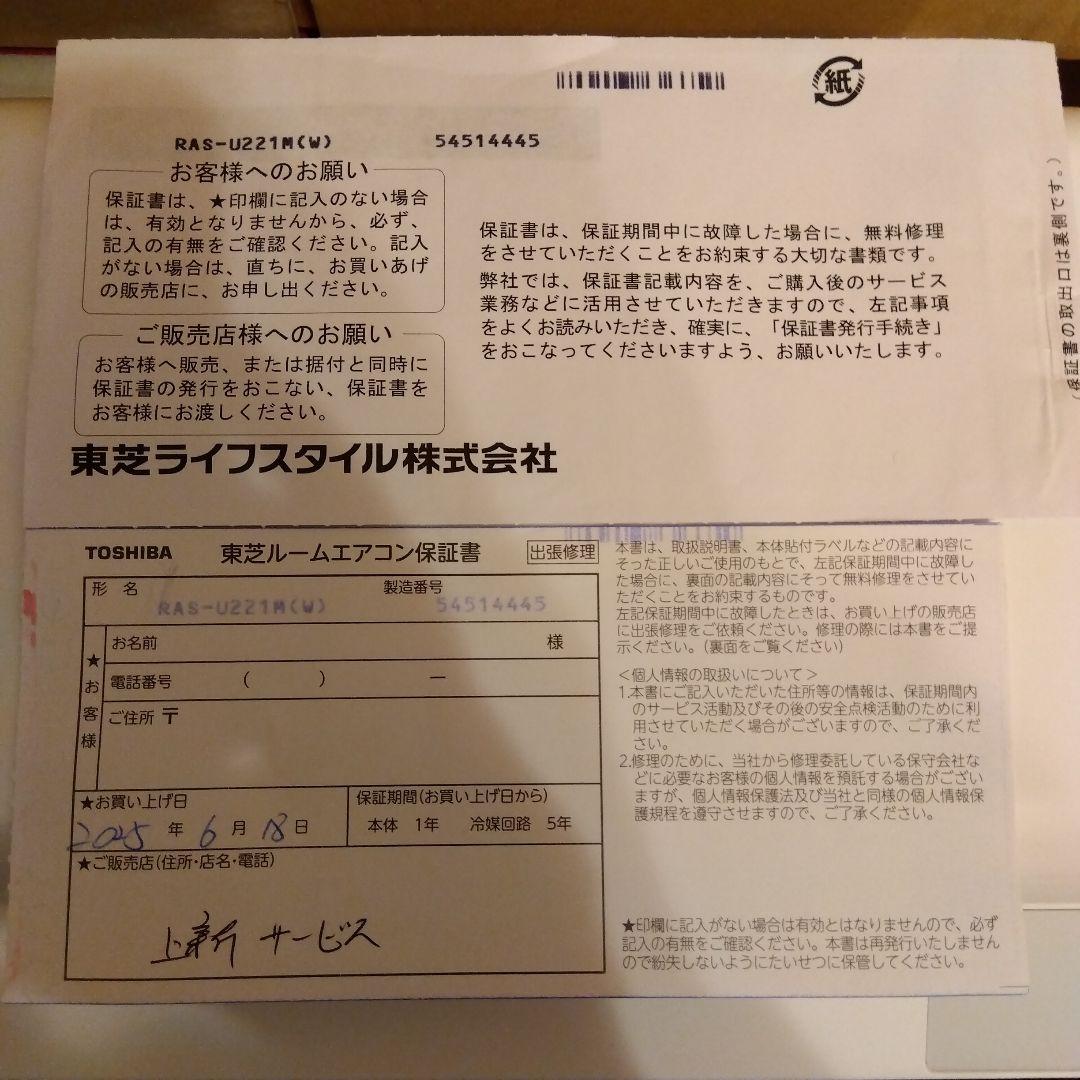 紙
RAS-U221M(W) 54514445
お客様へのお願い
保証書は、★印欄に記入のない場合
は、有効となりませんから、必ず、
記入の有無をご確認ください。記入
がない場合は、直ちに、お買いあげ
の販売店に、お申し出ください。
ご販売店様へのお願い
お客様へ販売、または据付と同時に
保証書の発行をおこない、保証書を
お客様にお渡しください。
保証書は、保証期間中に故障した場合に、無料修理
をさせていただくことをお約束する大切な書類です。
弊社では、保証書記載内容を、ご購入後のサービス
業務などに活用させていただきますので、左記事項
をよくお読みいただき、確実に、「保証書発行手続き」
をおこなってくださいますよう、お願いいたします。
(保証書の取出口は裏側です。)
東芝ライフスタイル株式会社
TOSHIBA 東芝ルームエアコン保証書 出張修理
形名 製造番号
RAS-U221M(W) 54514445
★お客様
お名前 様
電話番号 ( ) ー
ご住所 〒
★お買い上げ日
2025 年 6 月 18 日
保証期間(お買い上げ日から)
本体 1年 冷媒回路 5年
★ご販売店(住所・店名・電話)
上新 サービス
本書は、取扱説明書、本体貼付ラベルなどの記載内容に
そった正しいご使用のもとで、左記保証期間中に故障し
た場合に、裏面の記載内容にそって無料修理をさせてい
ただくことをお約束するものです。
左記保証期間中に故障したときは、お買い上げの販売店
に出張修理をご依頼ください。修理の際には本書をご提
示ください。(裏面をご覧ください)
<個人情報の取扱いについて>
1.本書にご記入いただいた住所等の情報は、保証期間内
のサービス活動及びその後の安全点検活動のために利
用させていただく場合がございますので、ご了承くだ
さい。
2.修理のために、当社から修理委託している保守会社な
どに必要なお客様の個人情報を預託する場合がござい
ますが、個人情報保護法及び当社と同様の個人情報保
護規程を遵守させますので、ご了承ください。
★印欄に記入がない場合は有効とはなりませんので、必ず
記入の有無をご確認ください。本書は再発行いたしません
ので紛失しないようにたいせつに保管してください。